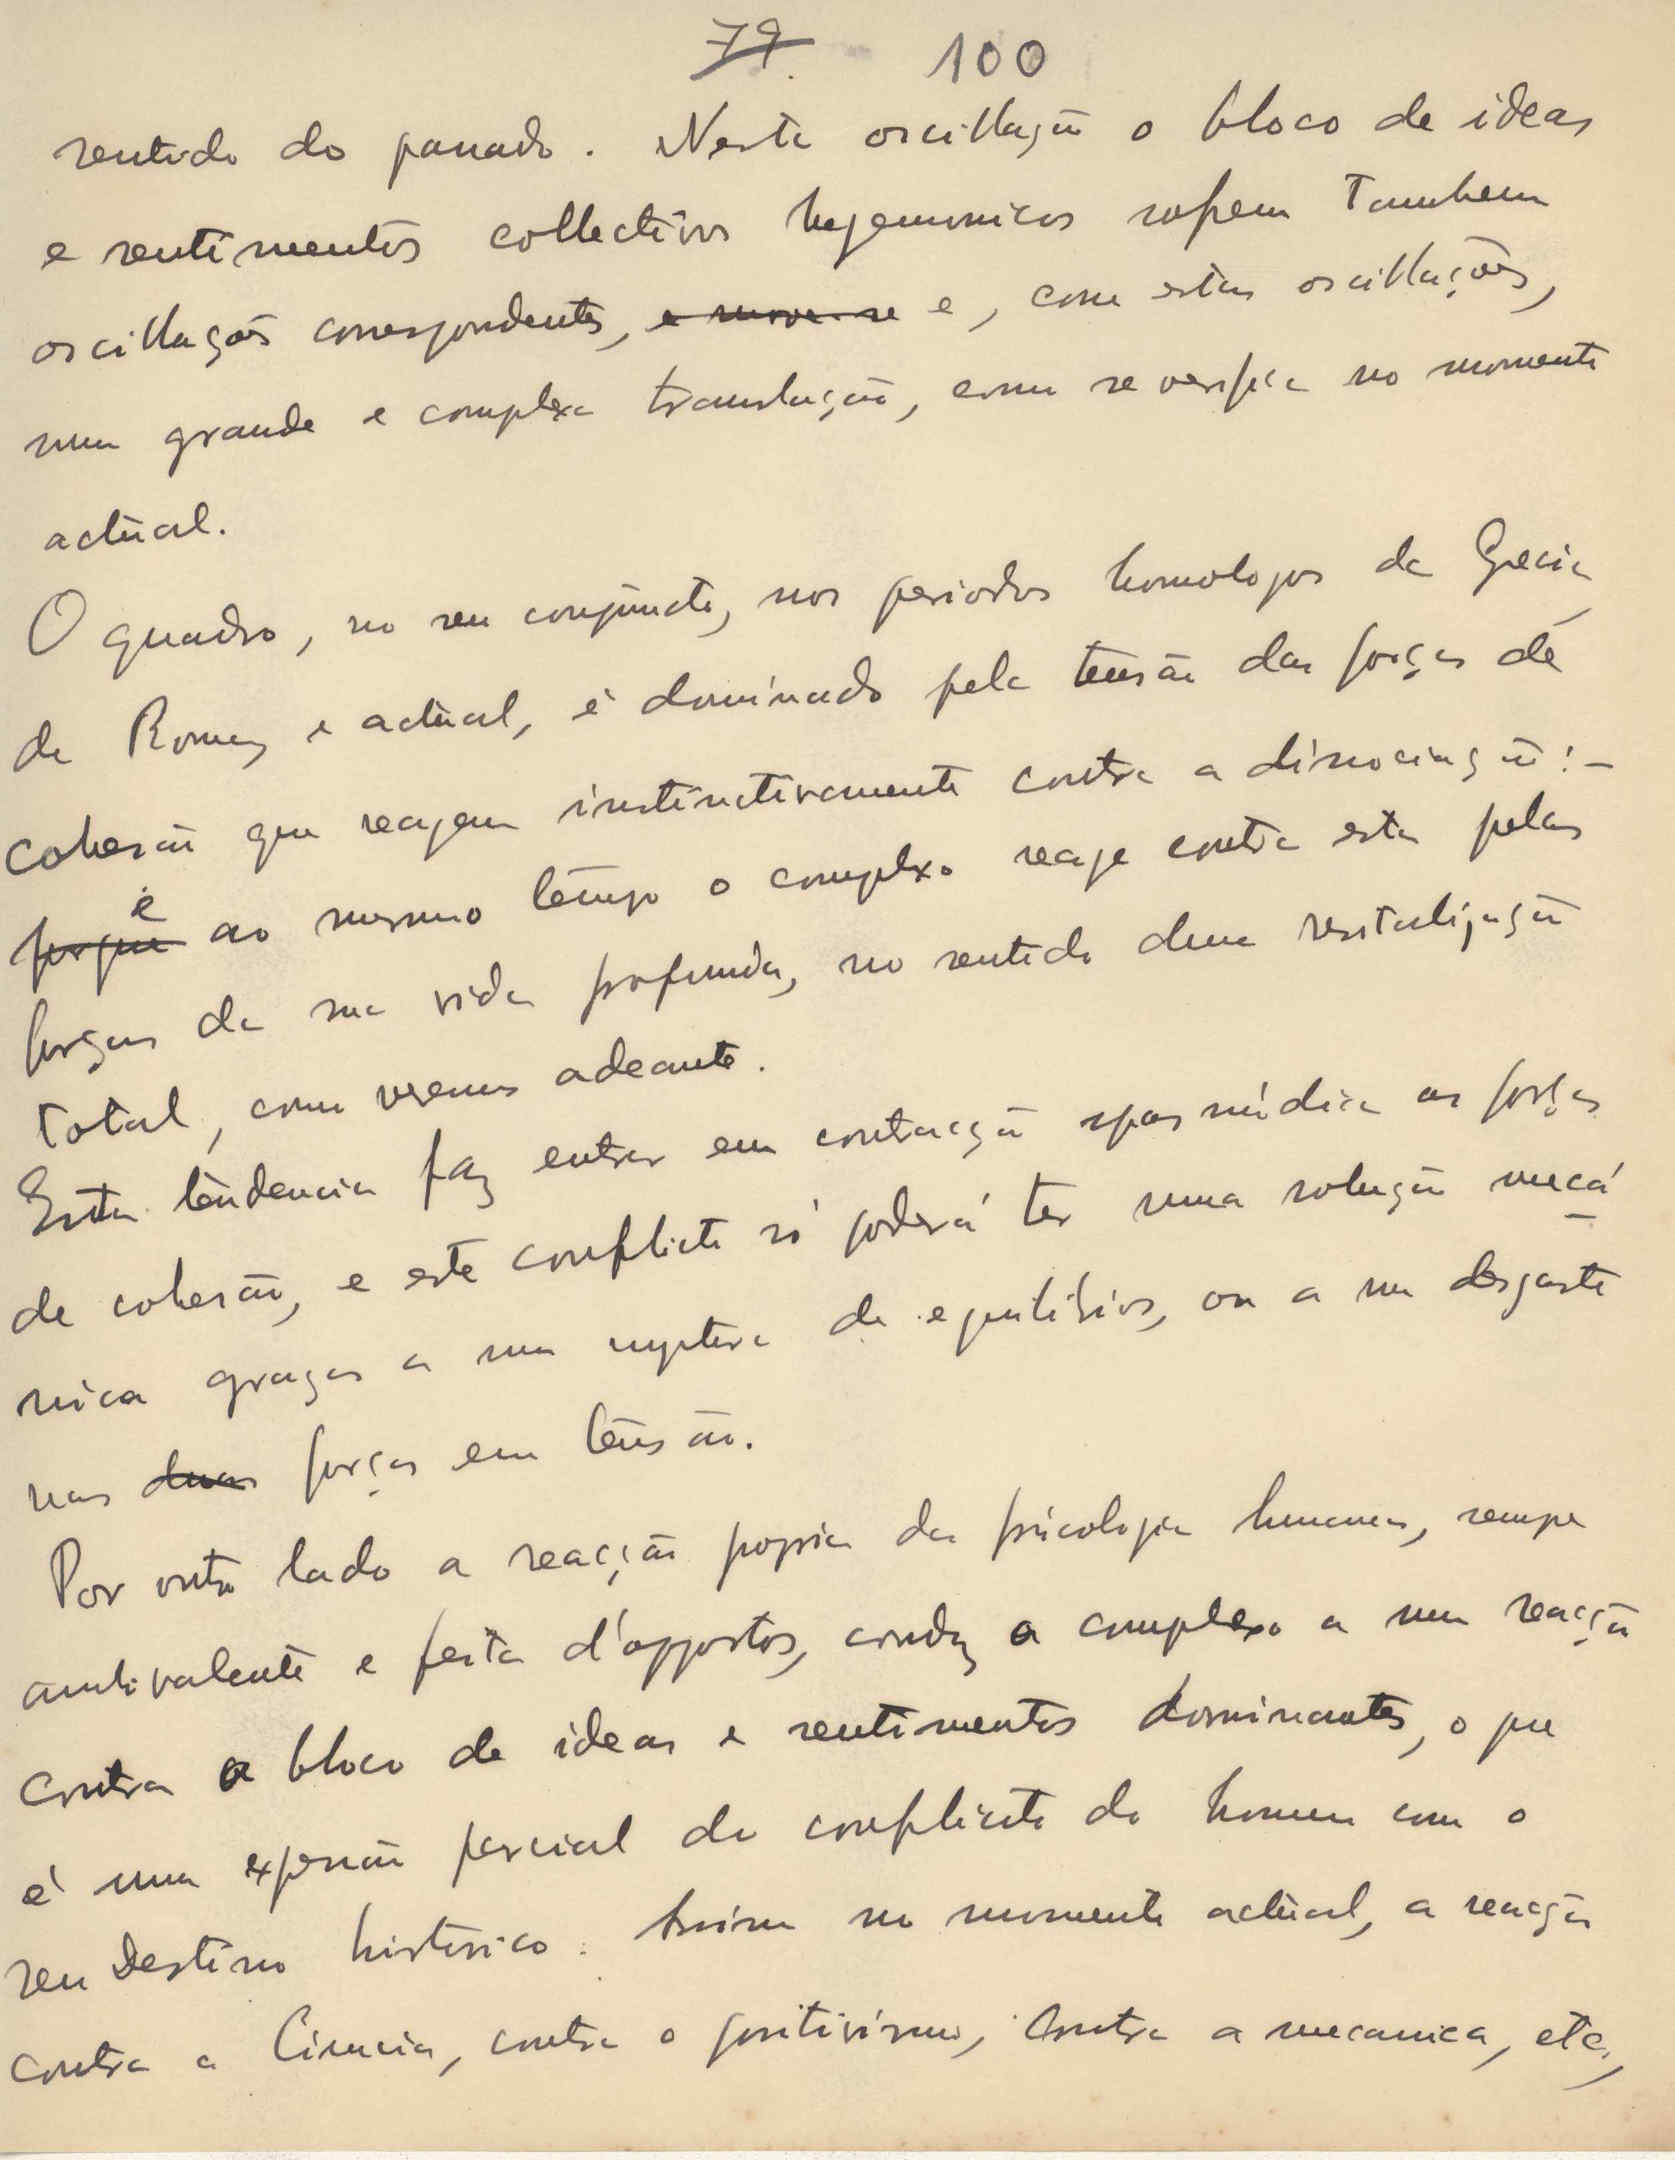 79. 100
sentido do passado. Nesta oscillação o bloco de ideas
e sentimentos collectivos hegemonicos sofrem tambem
oscillações correspondentes, e move-se e, com estas oscillações,
uma grande e complexa translação, como se verifica no momento
actual.
O quadro, no seu conjuncto, nos periodos homologos da Grecia,
de Roma, e actual, é dominado pela tensão das forças de
cohesão que reagem instinctivamente contra a dissociação: –
porque e ao mesmo tempo o complexo reage contra esta pelas
forças da sua vida profunda, no sentido duma revitalização
total, como veremos adeante.
Esta tendencia faz entrar em contracção espasmódica as forças
de cohesão, e este conflicto só poderá ter uma solução mecâ
nica graças a uma ruptura de equilibrios, ou a um desgaste
nas duas forças em tensão.
Por outro lado a reacção propria da psicologia humana, sempre
ambivalente e feita d'oppostos, conduz o complexo a uma reacção
contra o bloco de ideas e sentimentos dominantes, o que
é uma expressão parcial do conflicto do homem com o
seu Destino historico. Assim no momento actual, a reacção
contra a Ciencia, contra o positivismo, contra a mecanica, etc.,